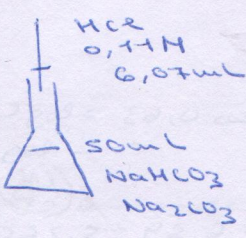 HCl
0,11M
6,07mL
50mL
NaHCO3
Na2CO3